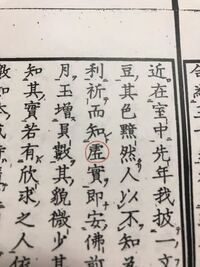 近在室中先年我披一文
豆其色黯然人以不知為
利祈而知虛實即安佛前
月玉增貝數其貌微少其
知其實若有欣求之人依